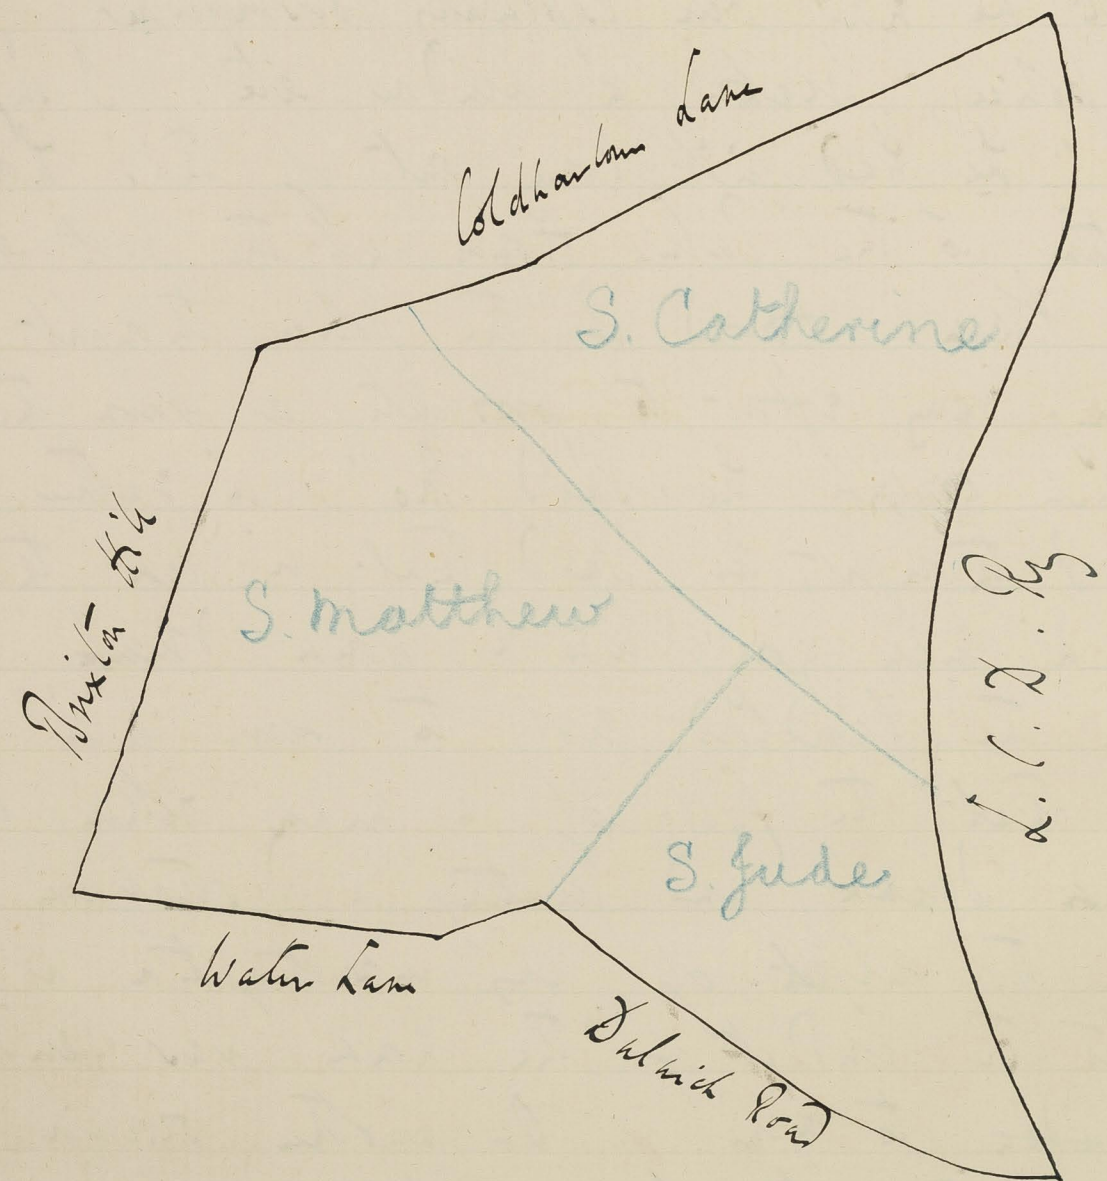 Coldharbour Lane
S. Catherine
Brixton Hill
S. Matthew
L. C. D. Ry
S. Jude
Water Lane
Dulwich Road